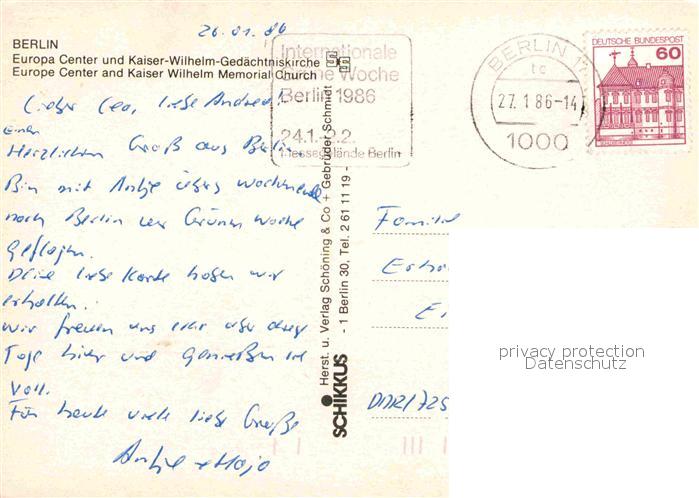 26.01.86
BERLIN
Europa Center und Kaiser-Wilhelm-Gedächtniskirche
Europe Center and Kaiser Wilhelm Memorial Church
Internationale
Grüne Woche
Berlin 1986
24.1.-2.2.
Messegelände Berlin
BERLIN
tc
27.1.86-14
1000
DEUTSCHE BUNDESPOST
60
Lieber Leo, liebe Andrea!
Einen
Herzlichen Gruß aus Berlin
Bin mit Antje übers Wochenende
nach Berlin zur Grünen Woche
geflogen.
Deine liebe Karte haben wir
erhalten.
Wir freuen uns sehr über diese
Tage hier und genießen sie
voll.
Für heute viele liebe Grüße
Antje + Hajo
SCHIKKUS
Herst. u. Verlag Schöning & Co + Gebrüder Schmidt
- 1 Berlin 30, Tel. 2 61 11 19 -
Familie
DDR/725
privacy protection
Datenschutz